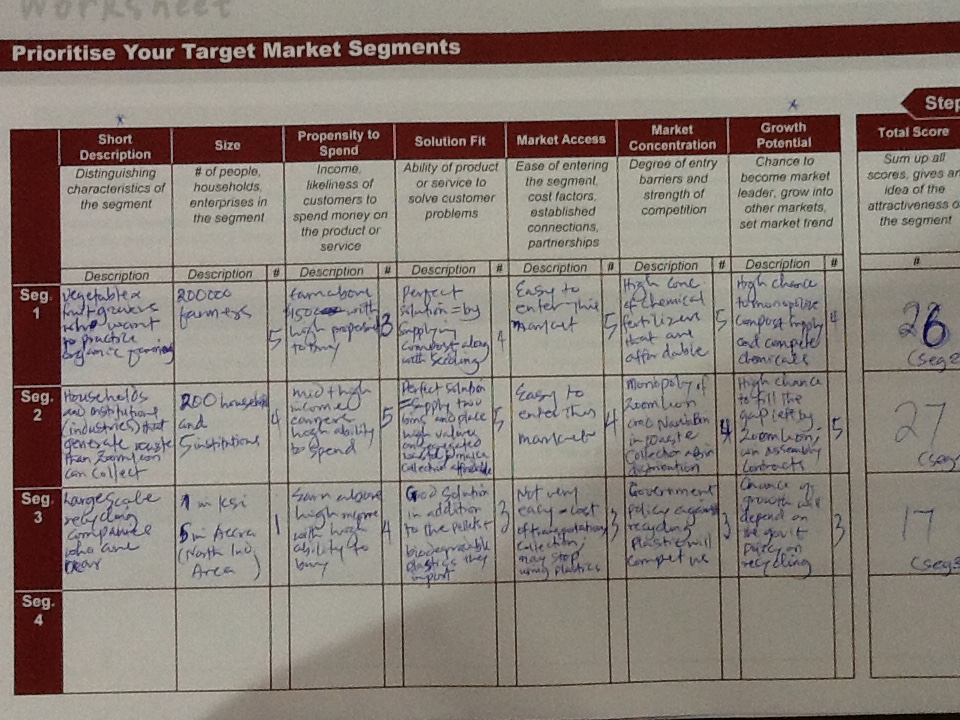 Worksheet
Prioritise Your Target Market Segments
Step
Short Description
Size
Propensity to Spend
Solution Fit
Market Access
Market Concentration
Growth Potential
Total Score
Distinguishing characteristics of the segment
# of people, households, enterprises in the segment
Income, likeliness of customers to spend money on the product or service
Ability of product or service to solve customer problems
Ease of entering the segment, cost factors, established connections, partnerships
Degree of entry barriers and strength of competition
Chance to become market leader, grow into other markets, set market trend
Sum up all scores, gives an idea of the attractiveness o the segment
Description
Description #
Description #
Description #
Description #
Description #
Description #
#
Seg. 1
vegetable &
fruit growers
who want
to practice
organic
200000
farmers
5
with
high
to buy
3
Perfect
solution = by
supplying
compost along
with seedling
4
Easy to
enter this
market
5
High conc
of chemical
fertilizers
that are
affordable
5
High chance
to monopolize
compost supply
and compete
chemicals
4
26
(seg
Seg. 2
Households
and institutions
(industries) that
generate waste
than Zoomlion
can collect
200 household
and
5 institutions
4
mid + high
income
high ability
to spend
5
Perfect solution
= supply two
bins and place
high value
Collection affordable
5
Easy to
enter this
market
4
Monopoly of
Zoomlion
in waste
collection
4
High chance
to fill the
gap left by
Zoomlion,
Assembly
contracts
5
27
(seg
Seg. 3
Large scale
recycling
companies
who are
1 in Ksi
5 in Accra
(North Ind.
Area)
1
Earn above
high income
with high
ability to
buy
4
Good solution
in addition
to the pellets
biodegradable
plastics they
import
3
Not very
easy - cost
of transportation,
collection,
may stop
using plastics
3
Government
policy against
recycling
plastic will
compet us
3
Chance of
growth will
depend on
policy on
recycling
3
17
(seg
Seg. 4